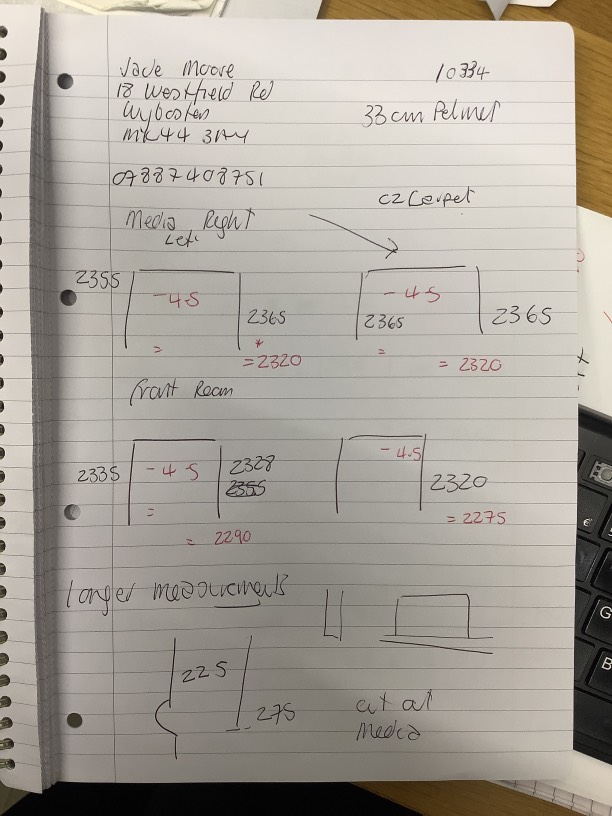 Jade Moore 10334
18 Westfield Rd
Wyboston 33cm Pelmet
MK44 3AY
07887408751
Media Right CZ Carpet
Left
2355 -45 -45
2365 2365 2365
= * =
=2320 = 2320
Front Room
2335 -45 2328 -45
2355 2320
= = 2275
= 2290
longer measurements
225
275 cut at
Media
€
G
B